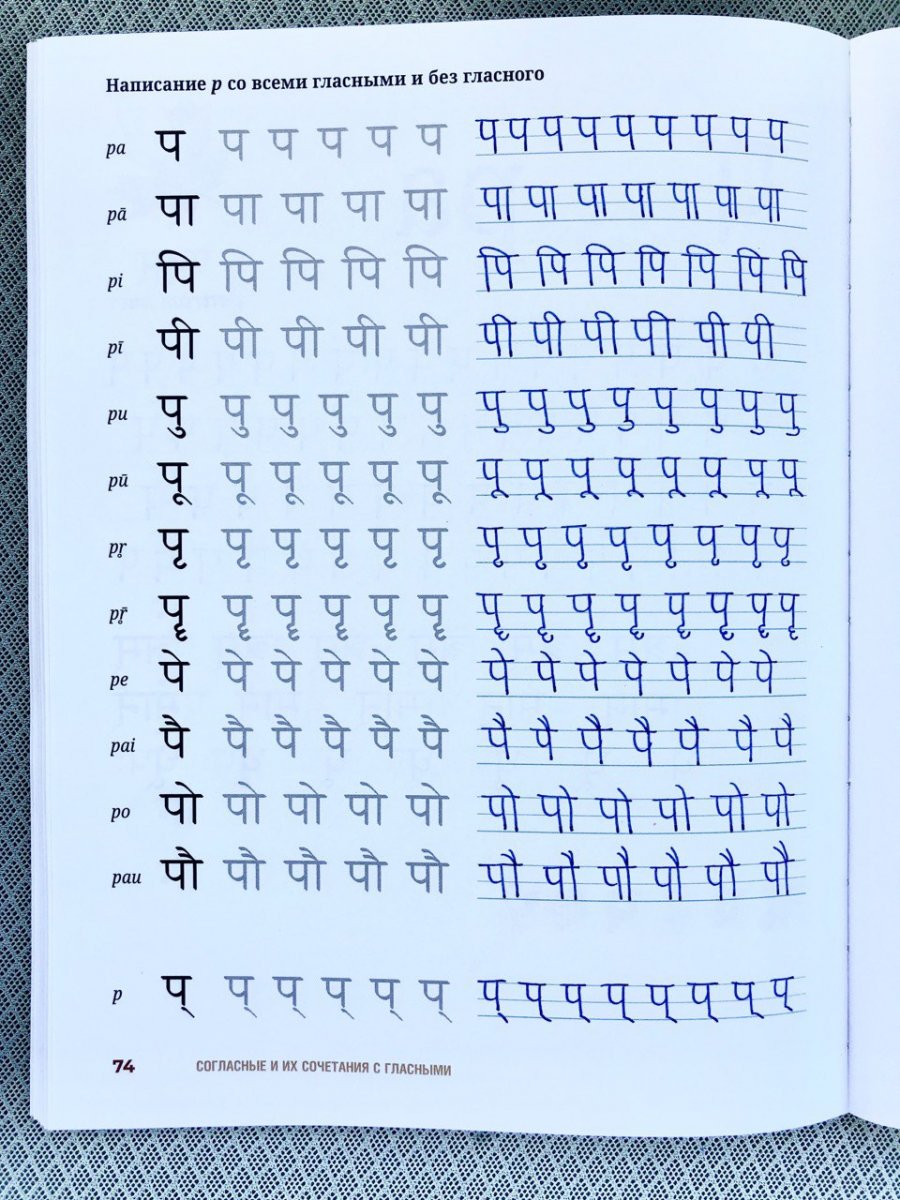 Написание p со всеми гласными и без гласного
pa प प प प प प प प प प प प प प प
pā पा पा पा पा पा पा पा पा पा पा पा पा
pi पि पि पि पि पि पि पि पि पि पि पि पि
pī पी पी पी पी पी पी पी पी पी पी पी
pu पु पु पु पु पु पु पु पु पु पु पु पु पु पु
pū पू पू पू पू पू पू पू पू पू पू पू पू पू पू
pṛ पृ पृ पृ पृ पृ पृ पृ पृ पृ पृ पृ पृ पृ पृ
pṝ पॄ पॄ पॄ पॄ पॄ पॄ पॄ पॄ पॄ पॄ पॄ पॄ पॄ पॄ
pe पे पे पे पे पे पे पे पे पे पे पे पे पे
pai पै पै पै पै पै पै पै पै पै पै पै पै पै
po पो पो पो पो पो पो पो पो पो पो पो
pau पौ पौ पौ पौ पौ पौ पौ पौ पौ पौ पौ
p प् प् प् प् प् प् प् प् प् प् प् प् प् प्
74 СОГЛАСНЫЕ И ИХ СОЧЕТАНИЯ С ГЛАСНЫМИ